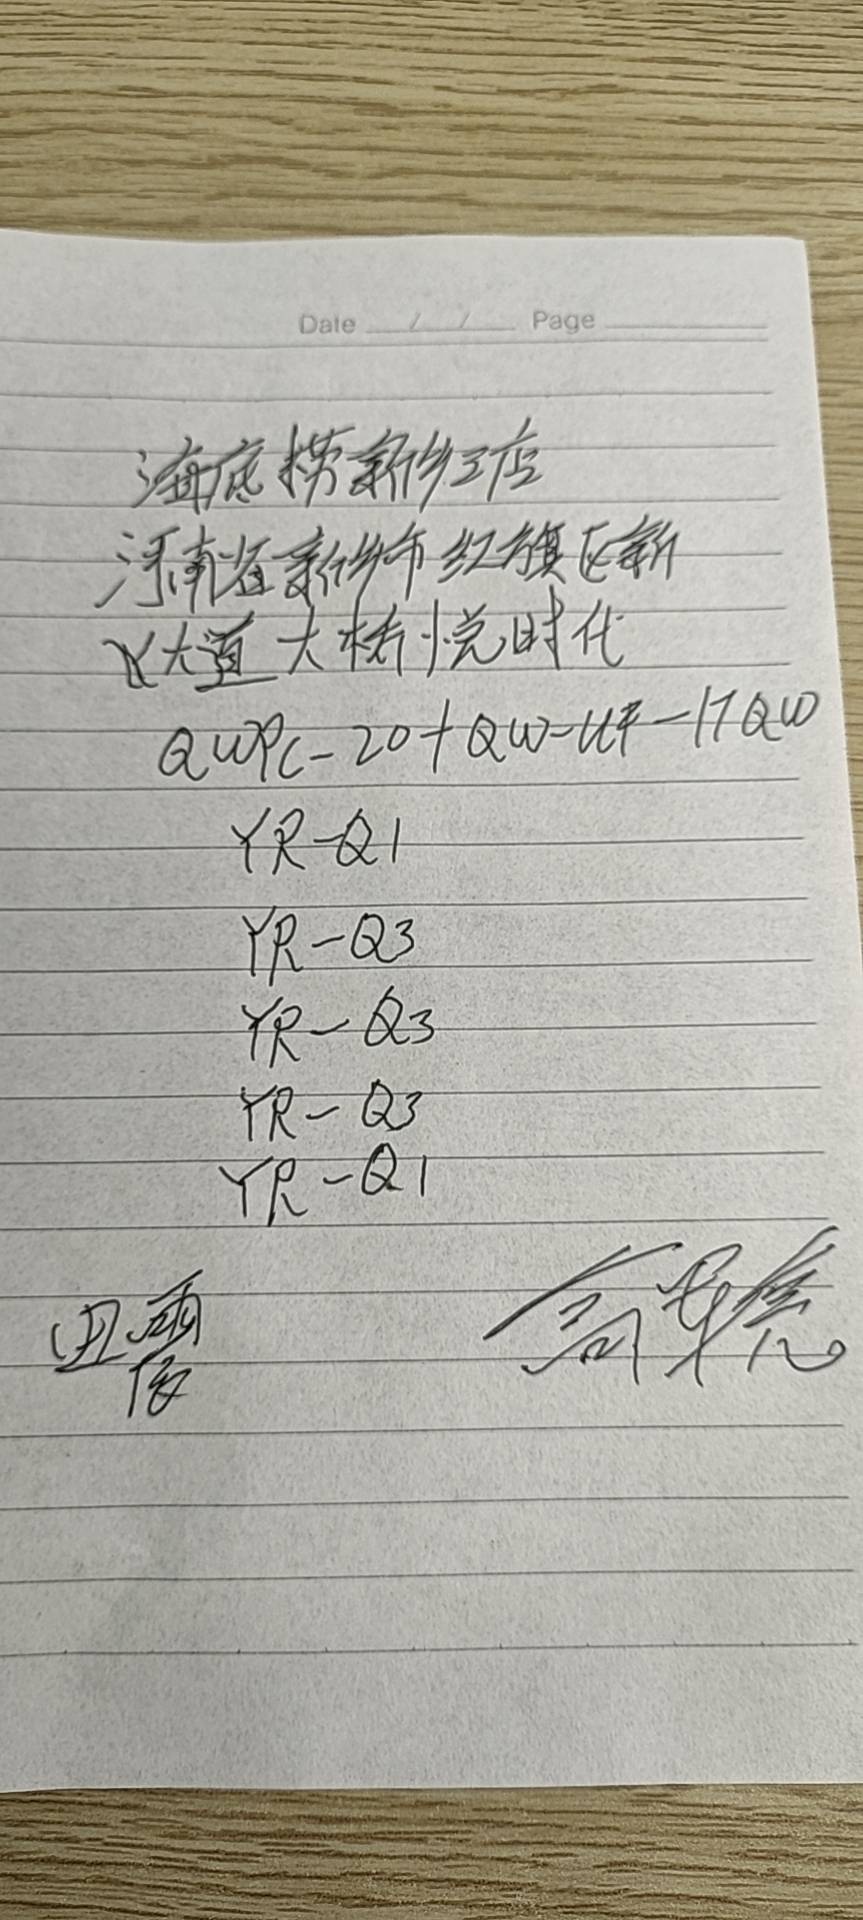 Date / / Page
海底捞新乡二店
河南省新乡市红旗区新
飞大道大桥悦时代
QWPC-20+QW-UF-17QW
YR-Q1
YR-Q3
YR-Q3
YR-Q3
YR-Q1
田雨